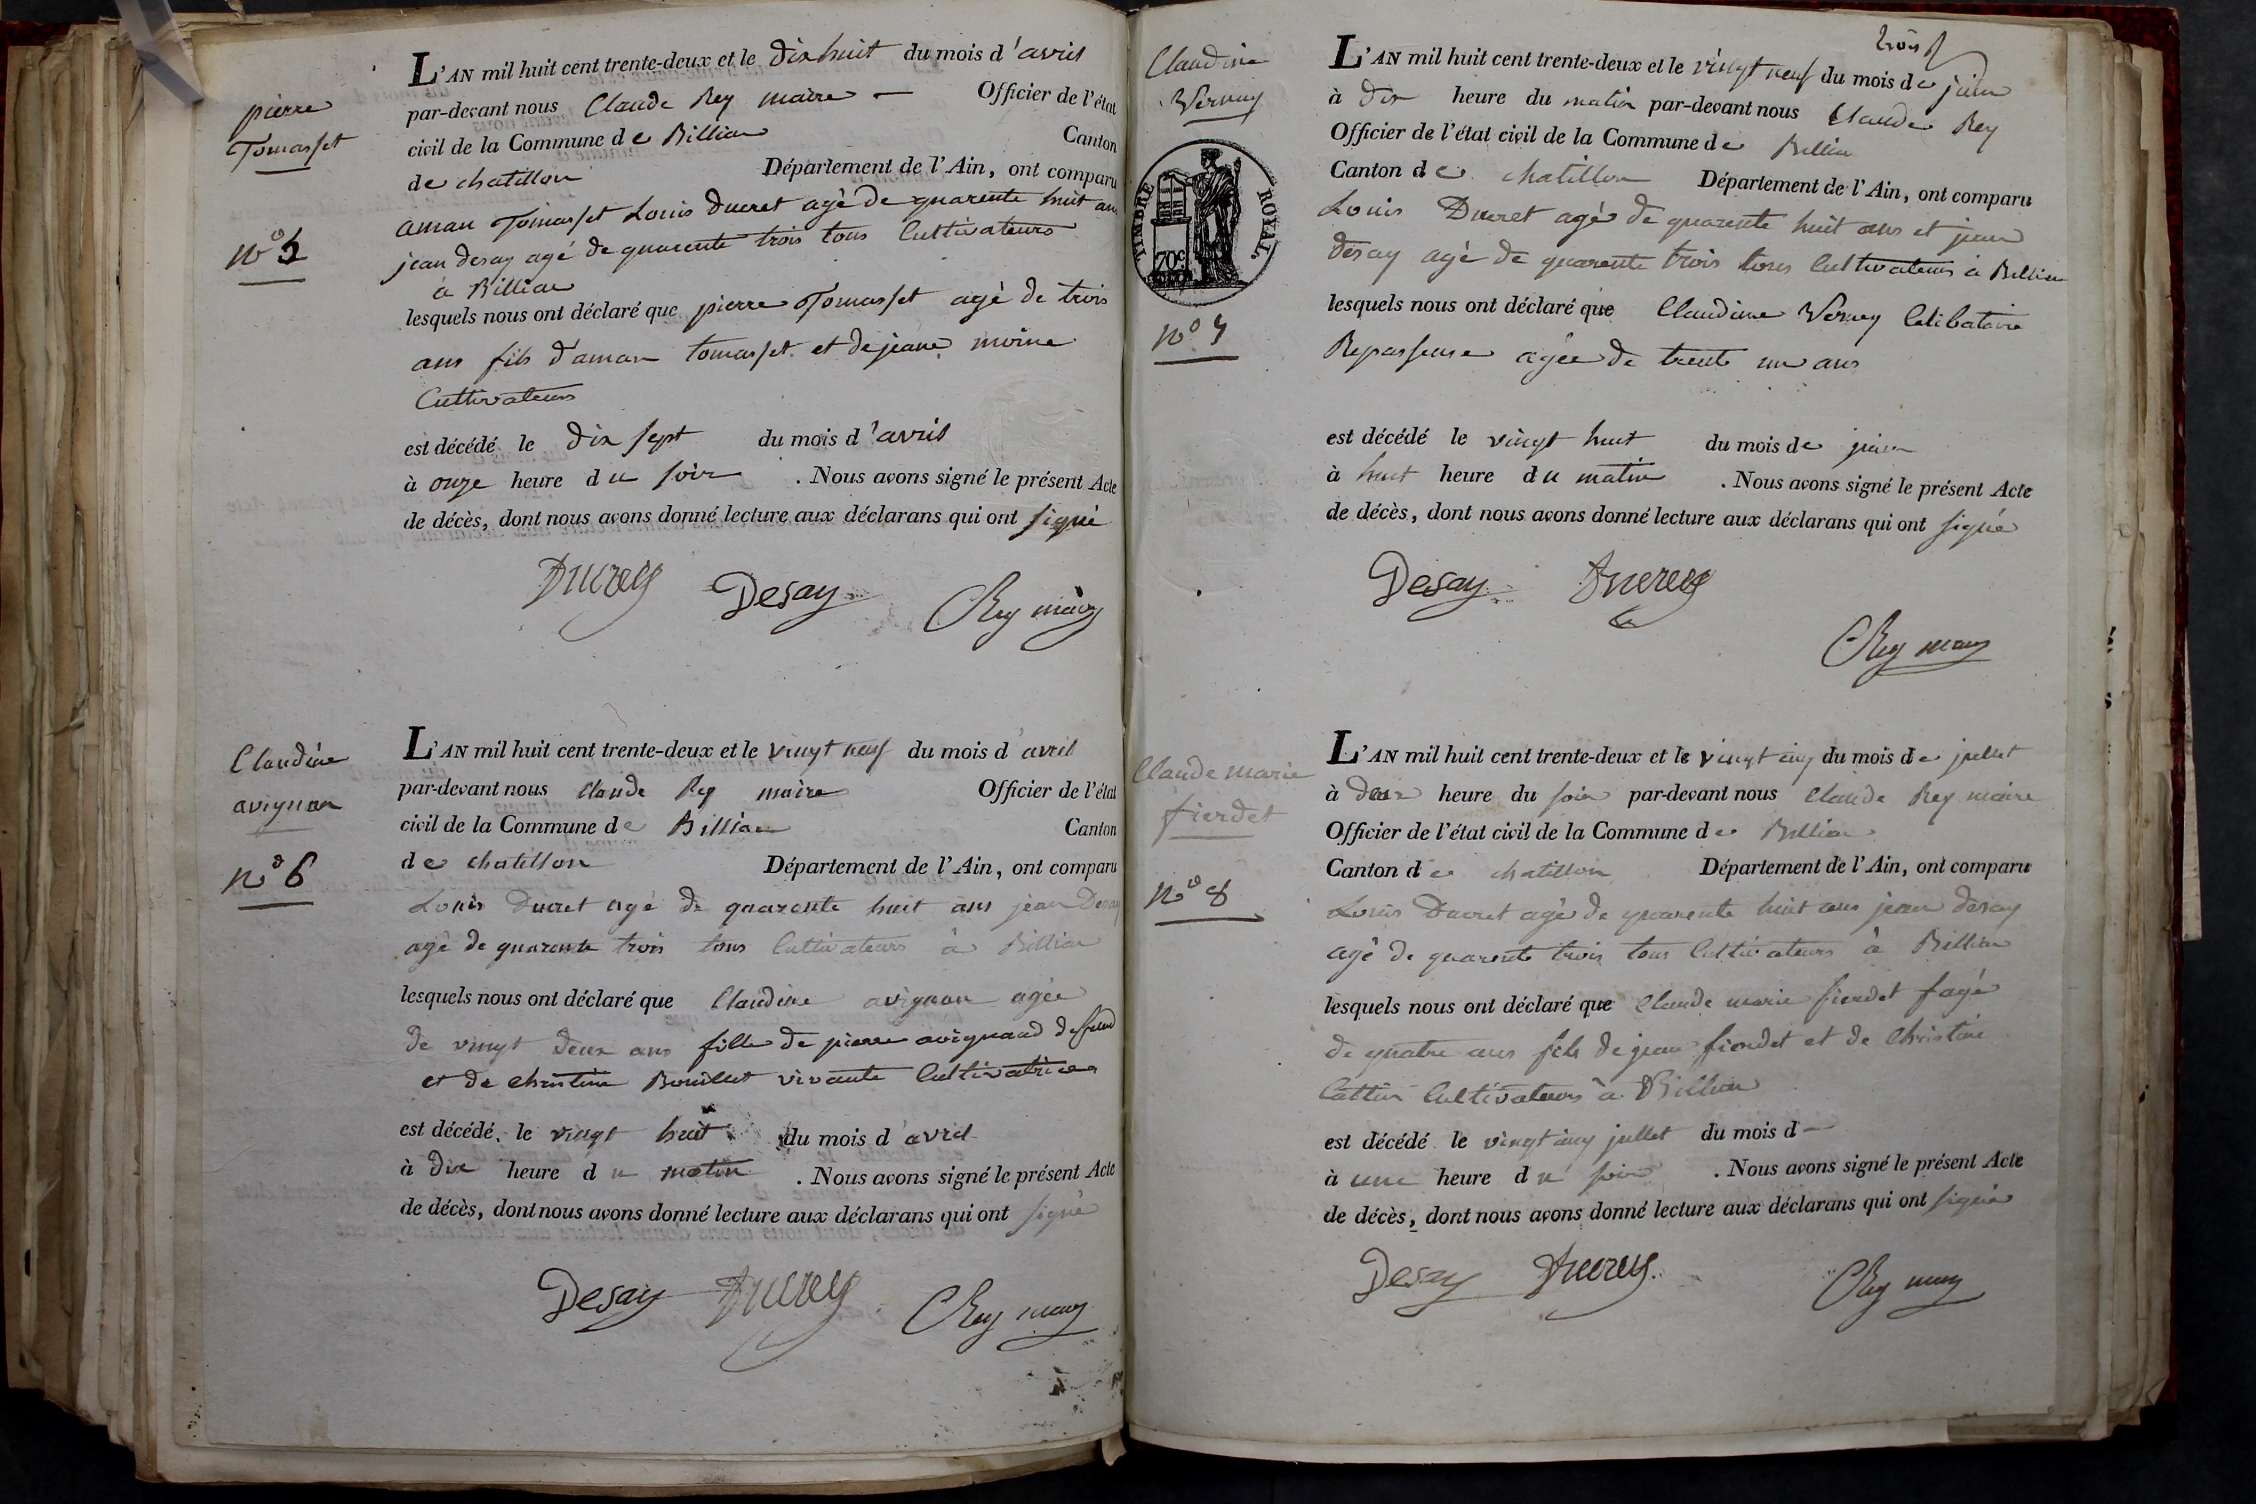 pierre
Tomasset
n° 5
L'AN mil huit cent trente-deux et le dix huit du mois d'avril
par-devant nous Claude Rey maire Officier de l'état
civil de la Commune de Billiat Canton
de chatillon Département de l'Ain, ont comparu
aman Tomasset Louis Ducret agé de quarente huit ans
jean desay agé de quarente trois tous Cultivateurs
a Billiat
lesquels nous ont déclaré que pierre Tomasset agé de trois
ans fils d'aman tomasset et de jeane moine
Cultivateurs
est décédé le dix sept du mois d'avril
à onze heure du soir . Nous avons signé le présent Acte
de décès, dont nous avons donné lecture aux déclarans qui ont signé
Ducrey Desay CRey maire
Claudine
avignon
n° 6
L'AN mil huit cent trente-deux et le vingt neuf du mois d'avril
par-devant nous Claude Rey maire Officier de l'état
civil de la Commune de Billiat Canton
de chatillon Département de l'Ain, ont comparu
Louis Ducret agé de quarente huit ans jean Desay
agé de quarente trois tous Cultivateurs à Billiat
lesquels nous ont déclaré que Claudine avignon agée
de vingt deux ans fille de pierre avignand
et de christine Bouillet vivante Cultivatrice
est décédé le vingt huit du mois d'avril
à dix heure du matin . Nous avons signé le présent Acte
de décès, dont nous avons donné lecture aux déclarans qui ont signé
Desay Ducrey CRey maire
trois
Claudine
Verney
TIMBRE ROYAL
70c
n° 7
L'AN mil huit cent trente-deux et le vingt neuf du mois de juin
à dix heure du matin par-devant nous Claude Rey
Officier de l'état civil de la Commune de Billiat
Canton de chatillon Département de l'Ain, ont comparu
Louis Ducret agé de quarente huit ans et jean
desay agé de quarente trois tous Cultivateurs a Billiat
lesquels nous ont déclaré que Claudine Verney Celibataire
Repasseuse agée de trente un ans
est décédé le vingt huit du mois de juin
à huit heure du matin . Nous avons signé le présent Acte
de décès, dont nous avons donné lecture aux déclarans qui ont signé
Desay Ducrey
CRey maire
Claude marie
fierdet
n° 8
L'AN mil huit cent trente-deux et le vingt cinq du mois de jullet
à deux heure du soir par-devant nous Claude Rey maire
Officier de l'état civil de la Commune de Billiat
Canton de chatillon Département de l'Ain, ont comparu
Louis Ducret agé de quarente huit ans jean desay
agé de quarente trois tous Cultivateurs à Billiat
lesquels nous ont déclaré que Claude marie fierdet agé
de quatre ans fils de jean fierdet et de Christine
Cattin Cultivateurs à Billiat
est décédé le vingt cinq jullet du mois d
à une heure du soir . Nous avons signé le présent Acte
de décès, dont nous avons donné lecture aux déclarans qui ont signé
Desay Ducrey CRey maire